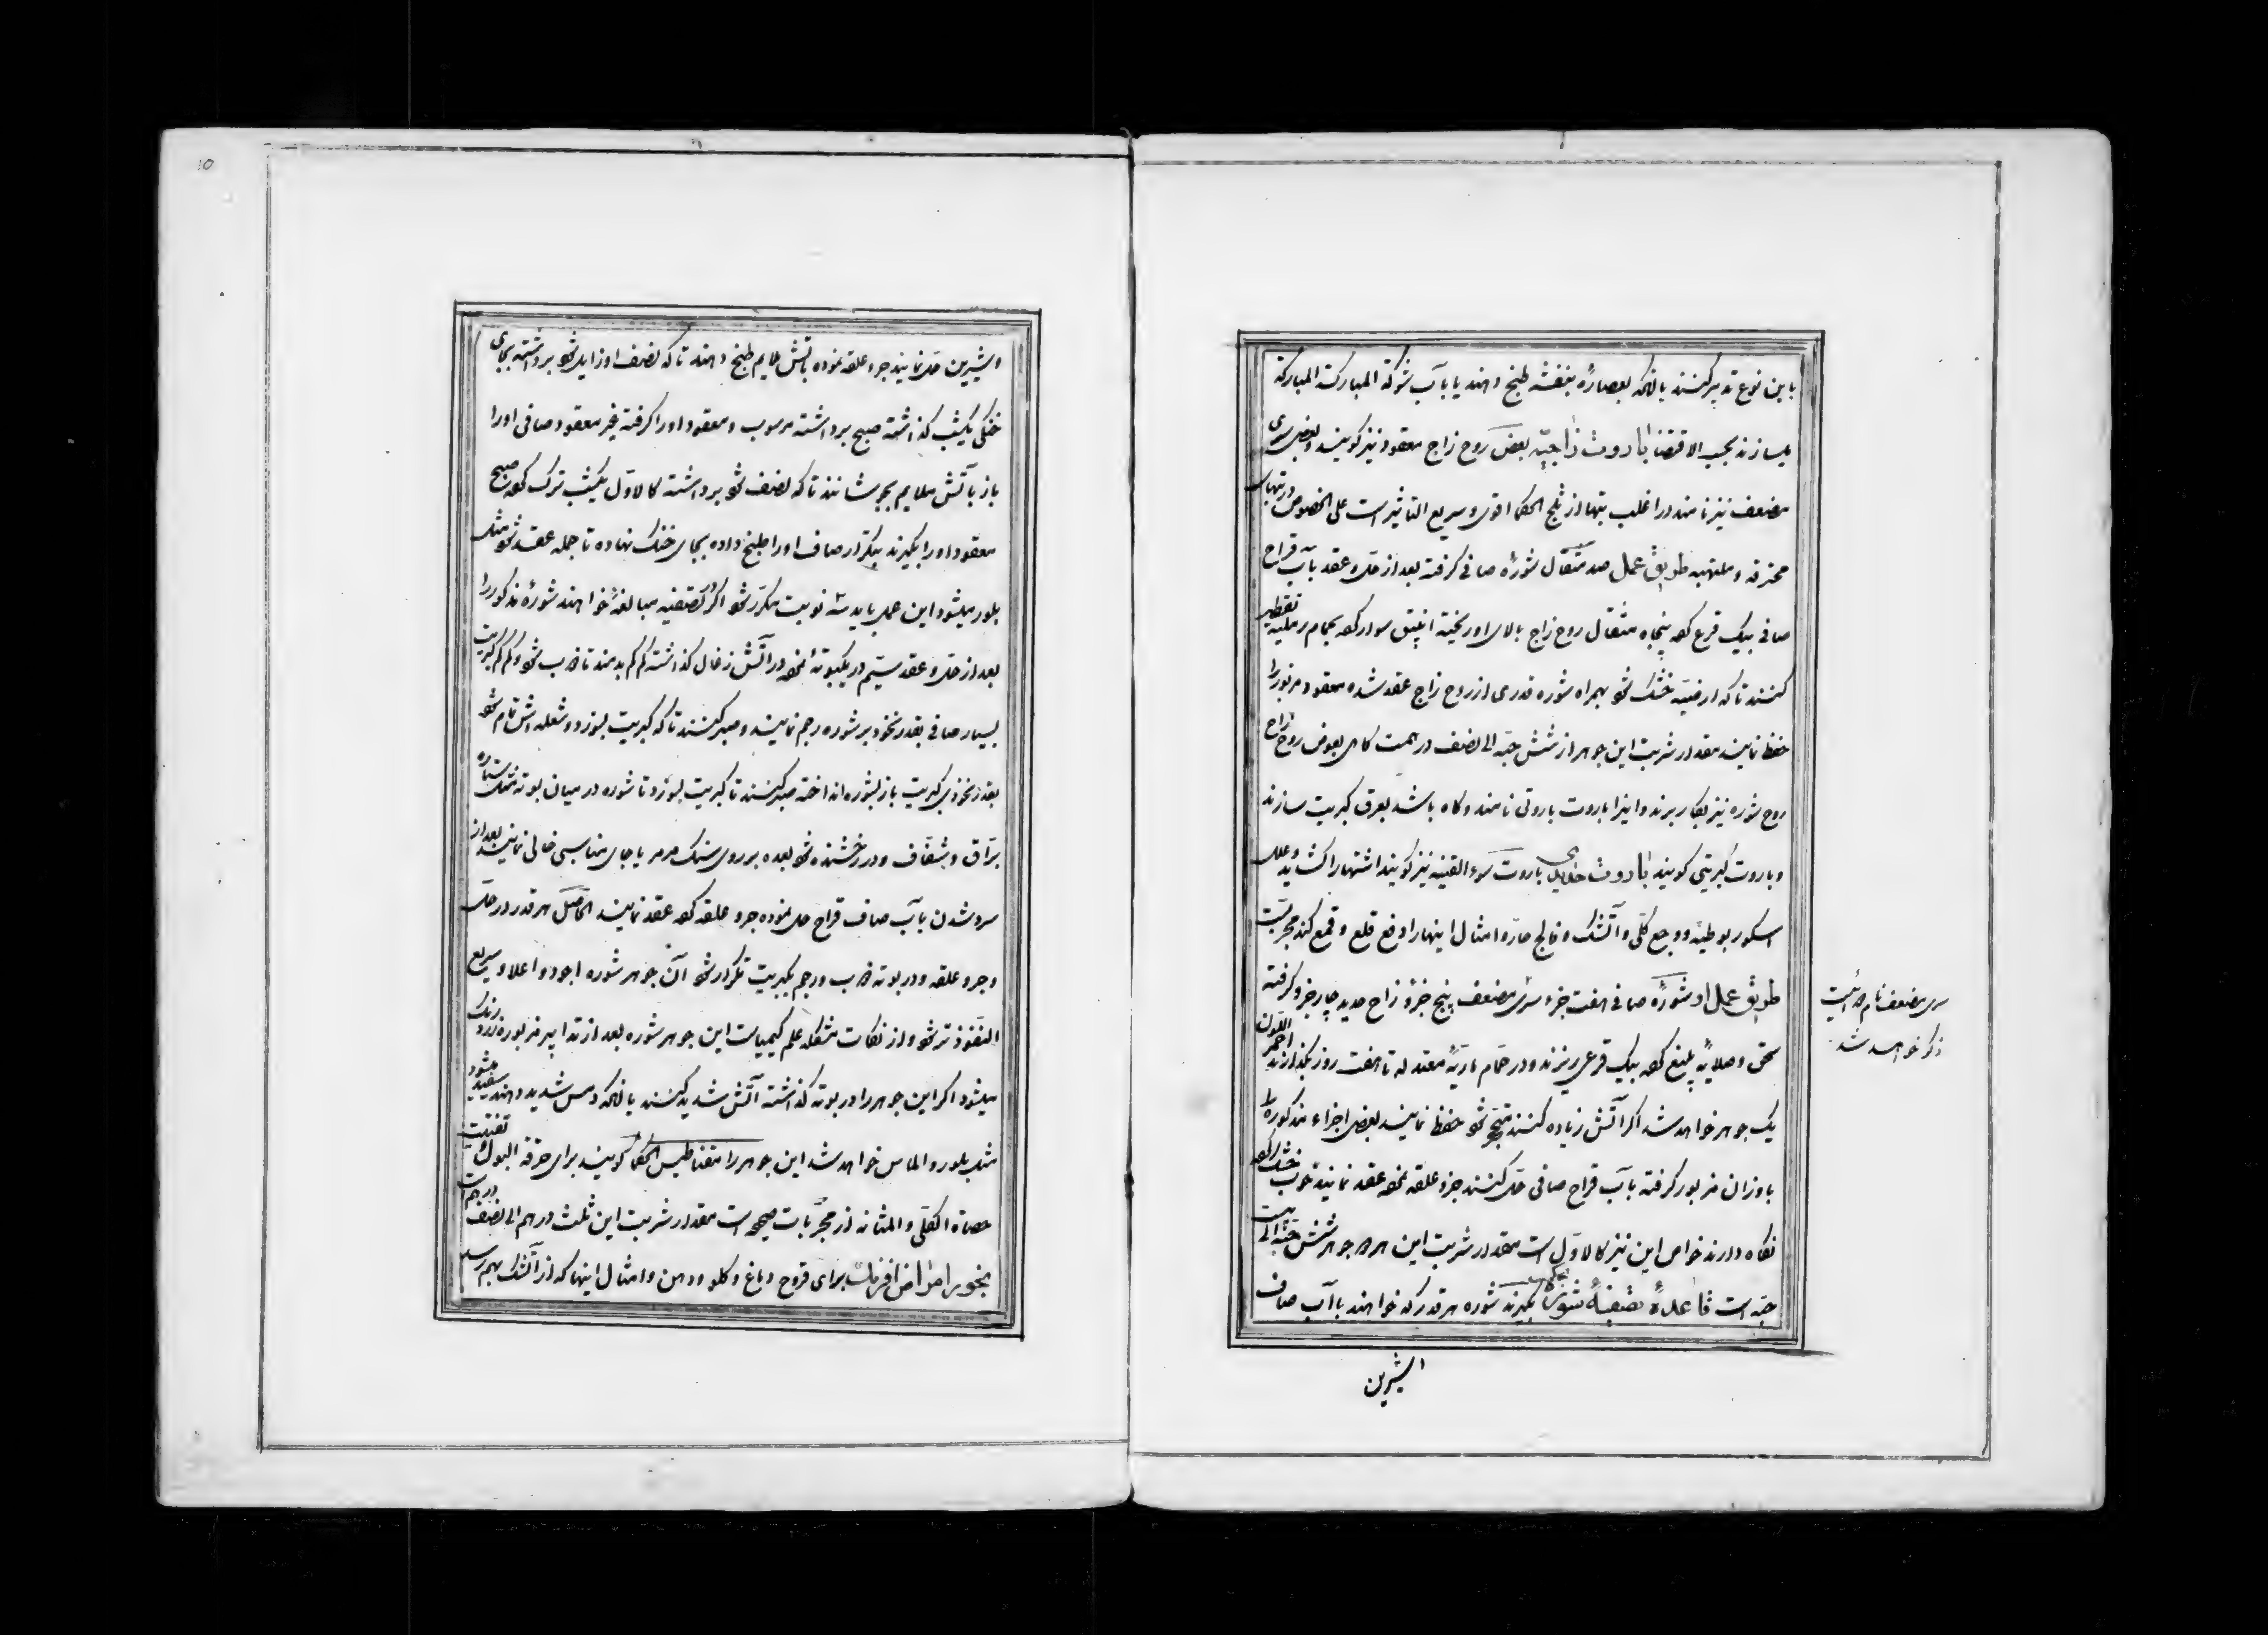 باین نوع تدبیر کنند بآنکه بعصارهٔ بنفشه طبخ دهند یا بآب شوکة المبارکة المبارکة
میسازند بحسب الاقتضا باروت زاجیّه بعض روح زاج معقود نیز گویند و بعض سری
مضعف نیز نامند در اغلب تبها از ثلج الحکما اقوی و سریع التاثیر است علی الخصوص در تبهای
محترقه و ملتهبه طریق عمل صد مثقال شورهٔ صافی گرفته بعد از حل و عقد بآب قراح
صافی بیک قرع کرده پنجاه مثقال روح زاج بالای او ریخته انبیق سوار کرده بحمام رملیه تقطیر
کنند تا که ارضیّه خشک شود بهمراه شوره قدری از روح زاج عقد شده معقود مزبور را
حفظ نمایند مقدار شربت این جوهر از شش حبّه الی نصف درهمست کاهی بعوض روح زاج
روح شوره نیز بکار برند و اینرا باروت باروتی نامند و کاه باشد بعرق کبریت سازند
و باروت کبریتی گویند باروت باروت سوء القنیه نیز گویند اشتهارا کشاید و علل
اسکوربوطیه و وجع کلی و آتشک و فالج حار و امثال اینها را دفع قلع و قمع کند مجربست
طریق عمل او شورهٔ صافی هفت جزء سری مضعف پنج جزؤ زاج حدید چار جزو گرفته
سحق و صلایهٔ بلیغ کرده بیک قرعی ریزند و در حمام ناریّهٔ معتدله تا هفت روز بگذارند احمر اللون
یک جوهر خواهد شد اگر آتش زیاده کنند شود حفظ نمایند بعض اجزاء مذکوره را
باوزان مزبور گرفته بآب قراح صافی حل کنند جزو علقه نموده عقد نمایند خوب خشک کرده
نکاه دارند خواص این نیز کالاوّل است مقدار شربت این هر دو جوهر شش حبّه الی بیست
حبّه است قاعدهٔ تصفیهٔ شوره بگیرند شوره هر قدر که خواهند باآب صاف
و شیرین
سری مضعف نام
ذکر خواهد شد
و شیرین حل نمایند جرو علقه نموده بآتش ملایم طبخ دهند تا که نصف او زایل شود برداشته بجای
خنکی یکشب گذاشته صبح برداشته مرسوب و معقود او را گرفته غیر معقود صافی او را
باز بآتش ملایم بجوشانند تا که نصف شود برداشته کالاوّل یکشب ترک کرده صبح
معقود او را بگیرند بتکرار صاف او را طبخ داده بجای خنک نهاده تا جمله عقد شود مثل
بلور میشود این عمل باید سه نوبت مکرّر شود اگر در تصفیه مبالغهٔ خواهند شورهٔ مذکور را
بعد از حل و عقد سیّم در یکبوتهٔ نموده در آتش زغال گذاشته کم کم بدمند تا ذوب شود و کم کم کبریت
بسیار صافی بقدر نخود بر شوره رجم نمایند و صبر کنند تا که کبریت بسوزد و شعله اش تمام شود
بقدر نخودی کبریت باز بشوره انداخته صبر کنند تا کبریت بسوزد تا شوره در میان بوته مثل ستاره
برّاق و شفاف و درخشنده شود بعده بر روی سنک مرمر یا جای مناسبی خالی نمایند بعد از
سرد شدن بآب صاف قراح حل نموده جرو علقه کرده عقد نمایند الحاصل هر قدر در حل
و جرو علقه و در بوته ذوب و رجم بکبریت تکرار شود آن جوهر شوره اجود و اعلا و سریع
النفوذتر شود و از نکات مشکله علم کیمیاست این جوهر شوره بعد از تدابیر مزبوره زرد رنک
میشود اگر این جوهر را در بوته گذاشته آتش شدید کنند بآنکه دمس شدید دهند سفید میشود
مثل بلور و الماس خواهد شد این جوهر را مقناطیس الحکما گویند برای حرقة البول و تفتیت
حصاة الکلی و المثانه از مجرّبات صحیحه است مقدار شربت این ثلث درهم الی نصف درهم است
بخور امراض افرنک برای قروح دماغ و کلو و دهن و امثال اینها که از آتشک بهم رسد